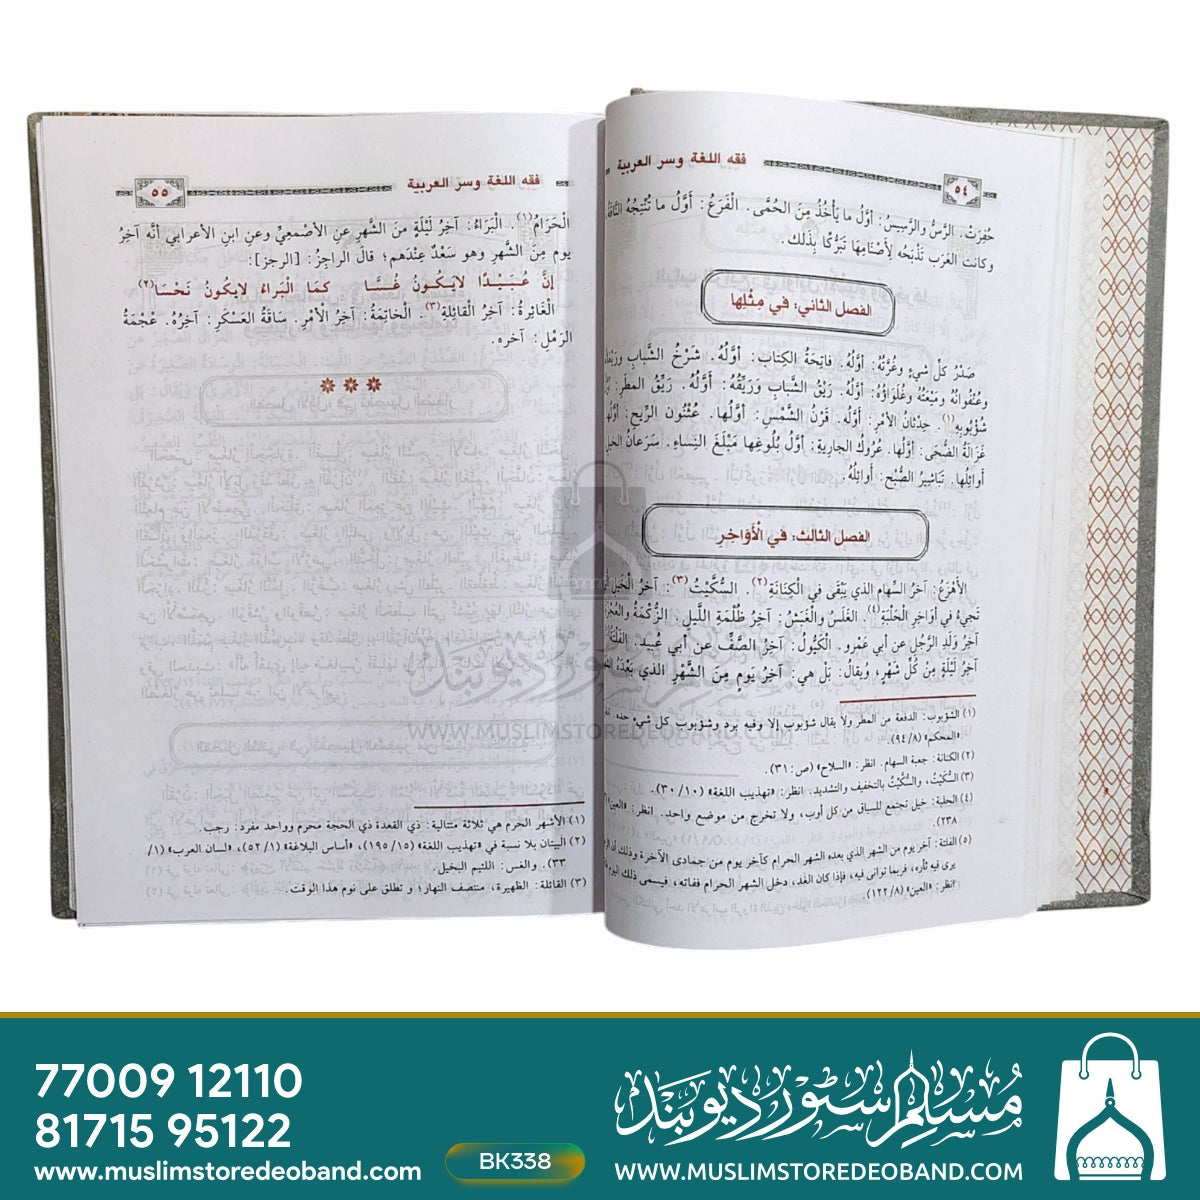 فقه اللغة وسر العربية
٥٤
حُفِرَتْ. الرَّسُّ والرَّسِيسُ: أوَّلُ ما يَأْخُذُ مِنَ الحُمَّى. الْفَرَعُ: أَوَّلُ ما تُنْتِجُهُ النَّاقَةُ
وكانت العَرَب تَذْبَحُه لأَصْنَامِها تَبَرُّكًا بِذَلك.
الفصل الثاني: في مِثْلِها
صَدْرُ كلِّ شيءٍ وغُرَّتُهُ: أوَّلُهُ. فاتِحَةُ الكِتاب: أوَّلُهُ. شَرْخُ الشَّبابِ
وعُنْفُوانُه ومَيْعَتُهُ وغُلَوَاؤُه: أوَّلُهُ. رَيْقُ الشَّبابِ وَرَيِّقُهُ: أَوَّلُهُ. رَيِّقُ المطَرِ:
شُؤْبُوبِهِ(١). حِدْثانُ الأَمْرِ: أوَّلُه. قَرْنُ الشَّمْسِ: أوَّلُها. عُثْنُون الرِّيحِ:
غَزَالَةُ الضُّحَى: أوَّلُها. عُرُوكُ الجارِيةِ: أوَّلُ بُلُوغِها مَبْلَغَ النِساءِ. سَرَعانُ الخيلِ
أَوائِلُها. تَباشِيرُ الصُّبْحِ: أَوائِلُهُ.
الفصل الثالث: في الْأَوَاخِرِ
الأَهْزَعُ: آخرُ السِّهامِ الذي يَبْقَى في الْكِنَانَةِ(٢). السُّكَّيْتُ(٣): آخرُ الْخَيْلِ
تَجِيءُ في أواخِرِ الْحَلْبَةِ(٤). الغَلَسُ والْغَبَشُ: آخِرُ ظُلْمَةِ الليلِ. الزُّكْمَةُ والْعُجْزَةُ
آخِرُ وَلَدِ الرَّجُلِ عن أبي عَمْرٍو. الْكَيُّولُ: آخِرُ الصَّفِّ عن أبي عُبيد. الفَلْتَةُ
آخِرُ لَيْلَةٍ مِنْ كُلِّ شَهْرٍ، ويُقالُ: بَلْ هي: آخِرُ يَومٍ مِنَ الشَّهْرِ الذي بَعْدَهُ الشهر
(١) الشؤبوب: الدفعة من المطر ولا يقال شؤبوب إلا وفيه برد وشؤبوب كل شيء حده.
«المحكم» (٩٤/٨).
(٢) الكنانة: جعبة السهام. انظر: «السلاح» (ص: ٣١).
(٣) السُّكَيْتُ، والسُّكَّيْتُ بالتخفيف والتشديد. انظر: «تهذيب اللغة» (٣٠/١٠).
(٤) الحلبة: خيل تجتمع للسباق من كل أوب، ولا تخرج من موضع واحد. انظر: «العين»
٢٣٨).
(٥) الفلتة: آخر يوم من الشهر الذي بعده الشهر الحرام كآخر يوم من جمادى الآخرة وذلك أن
يرى فيه ثأره، فربما توانى فيه، فإذا كان الغد، دخل الشهر الحرام ففاته، فيسمى ذلك اليوم
انظر: «العين» (١٢٢/٨).
فقه اللغة وسر العربية
٥٥
الْحَرَامُ(١). الْبَرَاءُ: آخِرُ لَيْلَةٍ منَ الشَّهرِ عنِ الأصْمَعِيِّ وعنِ ابنِ الأعرابي أنَّه آخِرُ
يوم مِنَ الشَّهرِ وهو سَعْدٌ عِنْدَهم؛ قالَ الراجِزُ: [الرجز]:
إنَّ عُبَيْدًا لايَكُونُ غُسًّا كمَا الْبَراءُ لايكُونُ نَحْسَا(٢)
الْغَائِرةُ: آخِرُ القَائِلَةِ(٣). الْخاتِمَةُ: آخِرُ الأَمْرِ. سَاقَةُ العَسْكَرِ: آخِرُهُ. عُجْمَةُ
الرَمْلِ: آخره.
***
(١) الأشهر الحُرم هي ثلاثة متتالية: ذي القعدة ذي الحجة محرم وواحد مفرد: رجب.
(٢) البيتان بلا نسبة في «تهذيب اللغة» (١٩٥/١٥)، «أساس البلاغة» (٥٢/١)، «لسان العرب» (١/
٣٣). والغس: اللئيم البخيل.
(٣) القائلة: الظهيرة، منتصف النهار؛ و تطلق على نوم هذا الوقت.
مسلم سٹور دیوبند
WWW.MUSLIMSTOREDEOBAND.COM
77009 12110
81715 95122
www.muslimstoredeoband.com
BK338
مسلم سٹور دیوبند
WWW.MUSLIMSTOREDEOBAND.COM